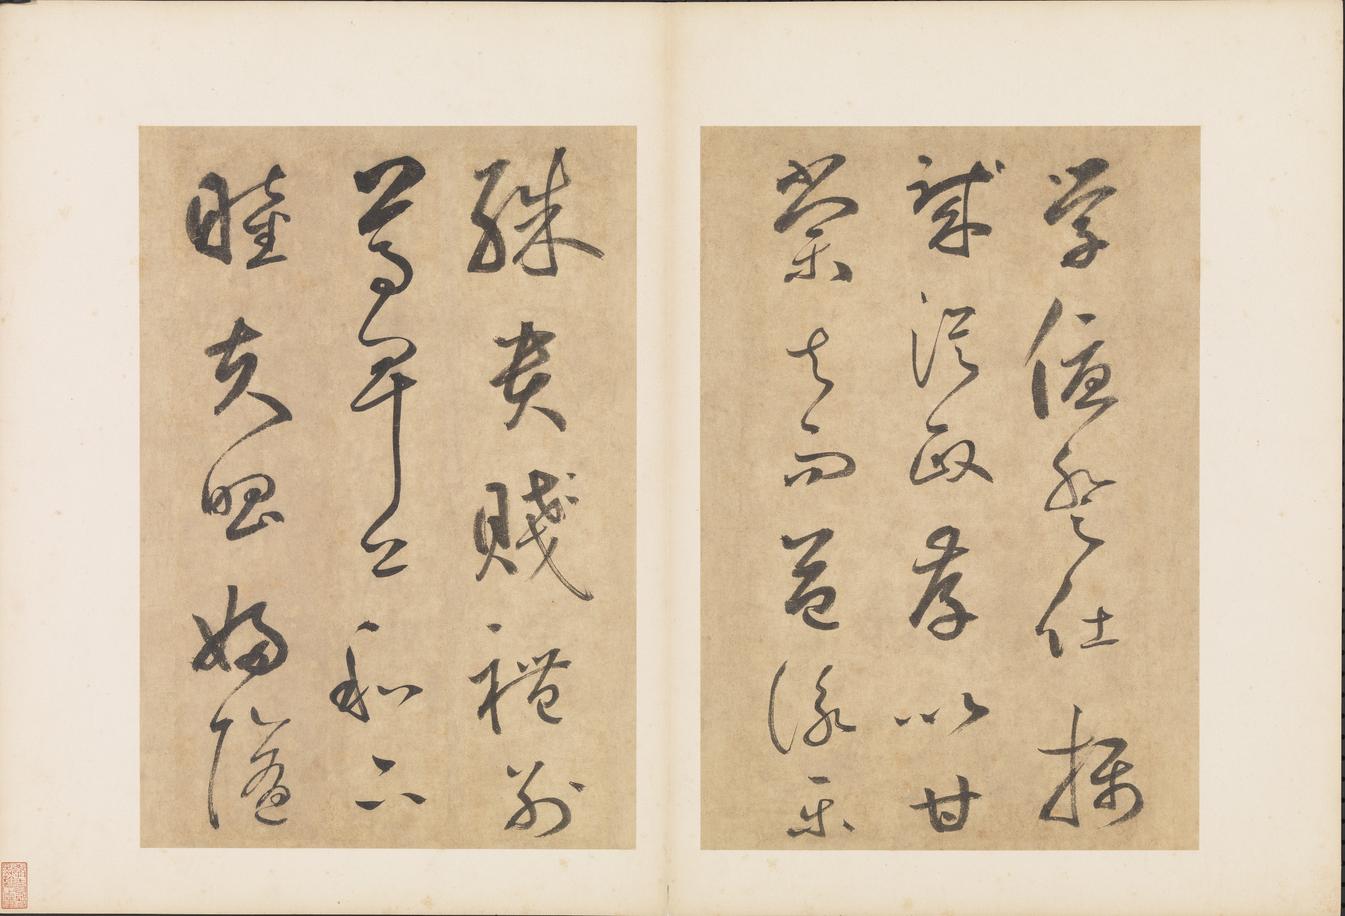 學優登仕攝
職從政存以甘
棠去而益詠樂
殊貴賤禮別
尊卑上和下
睦夫唱婦隨